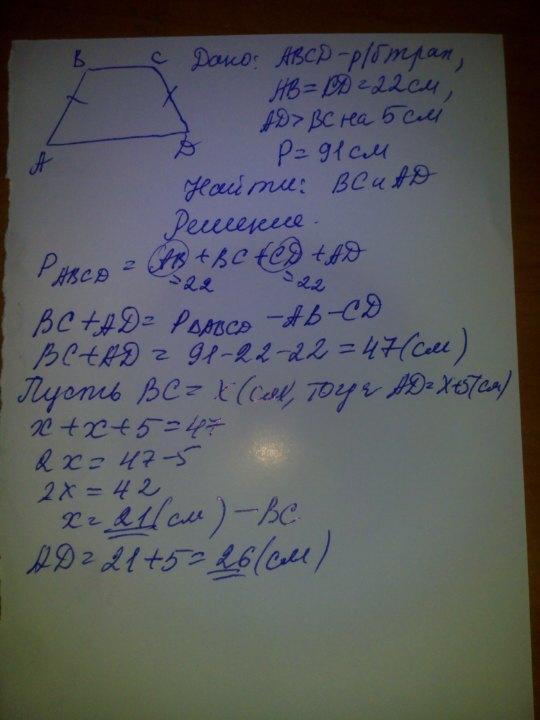 B C
A D
Дано: ABCD - р/б трап,
AB = CD = 22 см,
AD > BC на 5 см
P = 91 см
Найти: BC и AD
Решение.
P ABCD = AB + BC + CD + AD
= 22 = 22
BC + AD = P ABCD - AB - CD
BC + AD = 91 - 22 - 22 = 47 (см)
Пусть BC = x (см), тогда AD = x + 5 (см)
x + x + 5 = 47
2x = 47 - 5
2x = 42
x = 21 (см) - BC
AD = 21 + 5 = 26 (см)